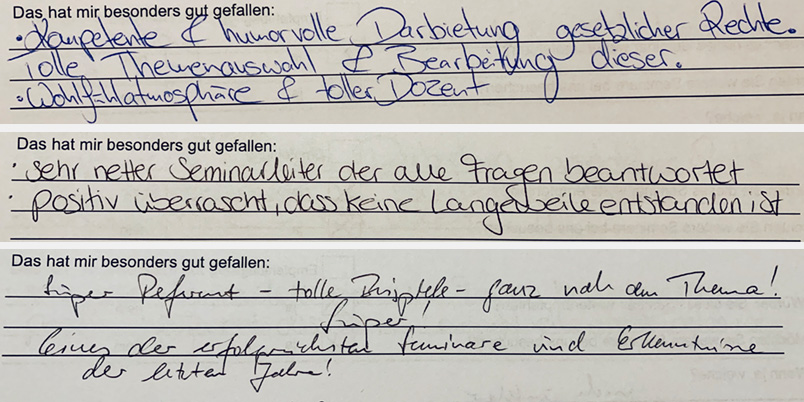 Das hat mir besonders gut gefallen:
• Kompetente & humorvolle Darbietung gesetzlicher Rechte.
Tolle Themenauswahl & Bearbeitung dieser.
• Wohlfühlatmosphäre & toller Dozent
Das hat mir besonders gut gefallen:
• sehr netter Seminarleiter der alle Fragen beantwortet
• positiv überrascht, dass keine Langeweile entstanden ist
Das hat mir besonders gut gefallen:
Super Referent – tolle Beispiele – ganz nah am Thema!
Super!
Eines der erfolgreichsten Seminare und Erkenntnisse
der letzten Jahre!